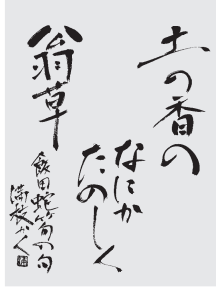 土の香の
なにか
たのしく
翁草
飯田蛇笏の句
満枝かく